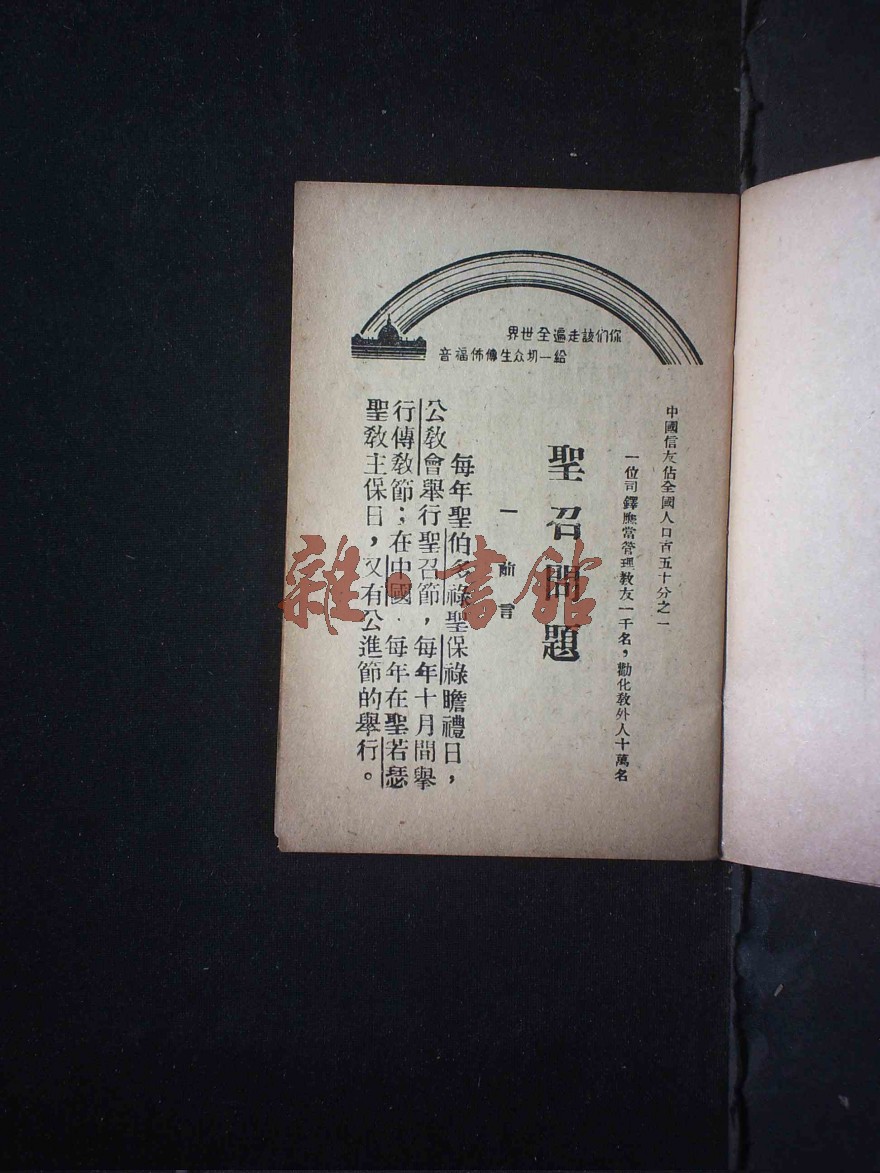 你們該走遍全世界
給一切众生傳佈福音
中國信友佔全國人口百五十分之一
一位司鐸應當管理教友一千名，勸化敎外人十萬名
聖召問題
一 前言
每年聖伯多祿聖保祿瞻禮日，
公敎會舉行聖召節，每年十月間舉
行傳敎節；在中國．每年在聖若瑟
聖敎主保日，又有公進節的舉行。
雜·書館